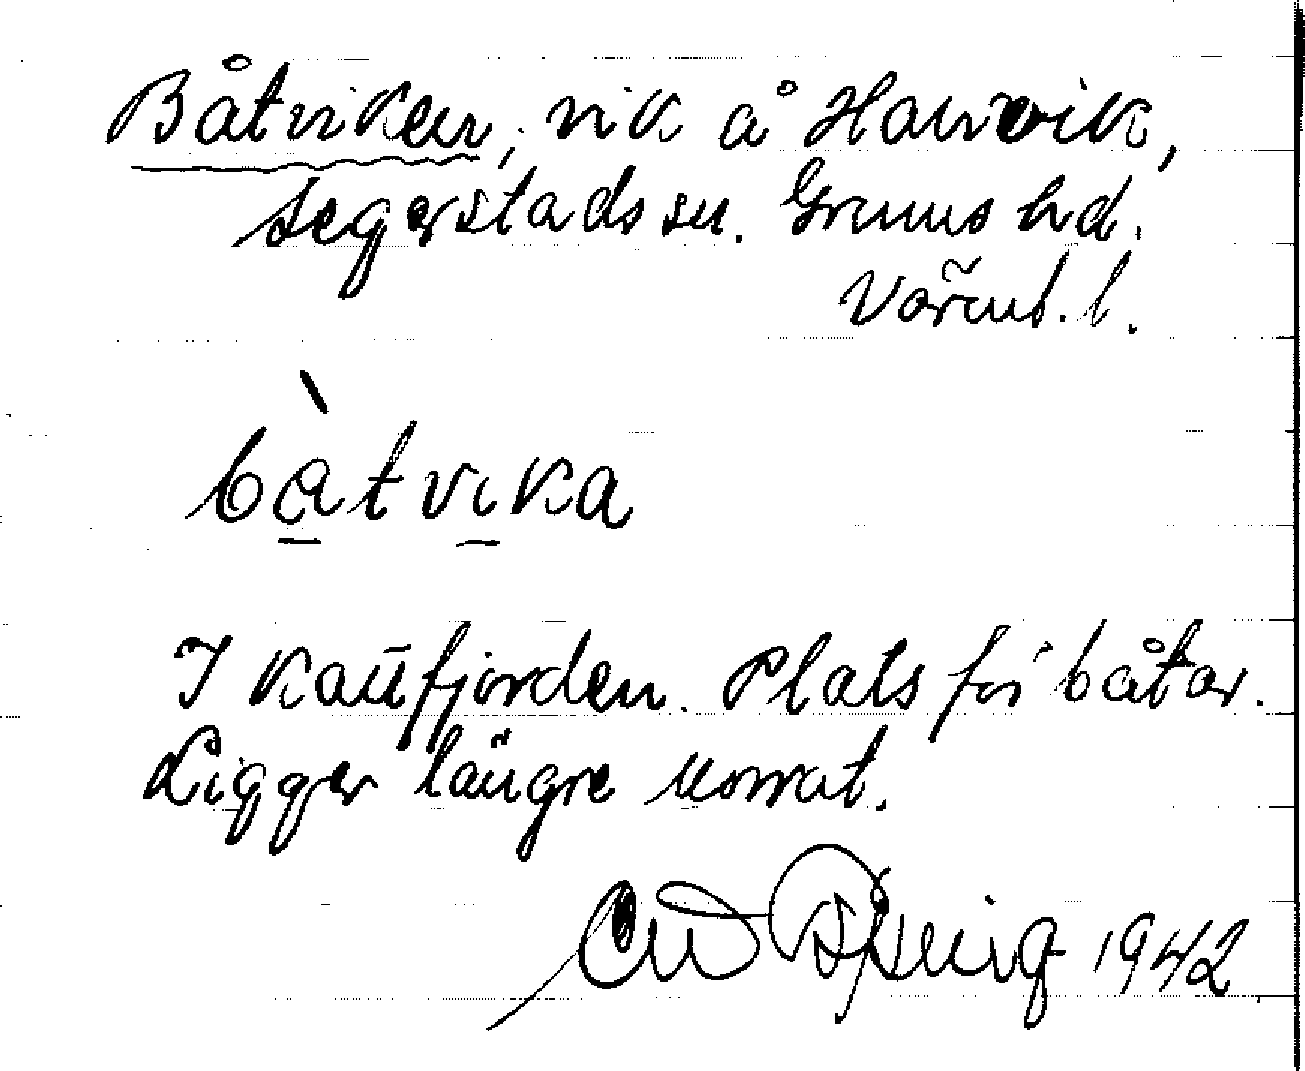 Båtviken, vik å Hamvik,
Segerstads sn. Grums hd.
Värml. l.
bàtvika
I Kattfjorden. Plats för båtar.
Ligger längre norrat.
1942